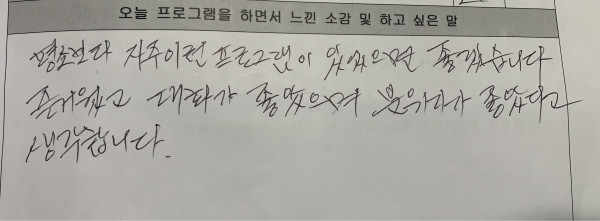 오늘 프로그램을 하면서 느낀 소감 및 하고 싶은 말
자주이런 프로그램이 있었으면 좋겠습니다
즐거웠고 대화가 좋았으며 분위기가 좋았다고
생각합니다.